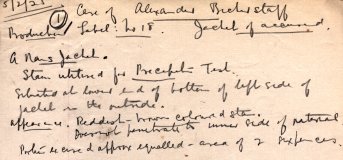 5/2/25
Case of Alexander Becherstaff
Production (1) Label: No 18. Jacket of accused.
A Mans Jacket.
Stain utilised for Precipitin Test.
Situated at lower end of bottom of left side of
jacket on the outside.
appearance. Reddish-brown coloured stain.
Does not penetrate to inner side of material
Portion excised approx equalled area of 2 sixpences.